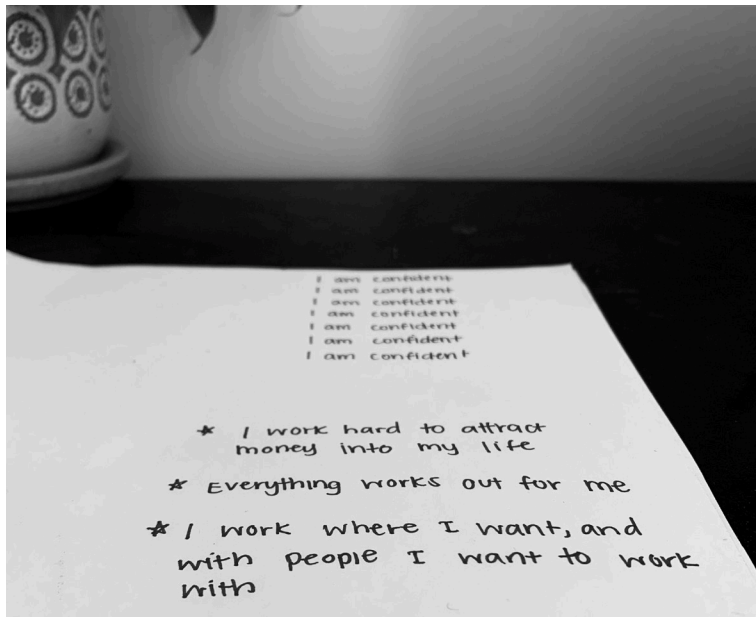 I am confident
I am confident
I am confident
I am confident
I am confident
I am confident
I am confident
* I work hard to attract
money into my life
* Everything works out for me
* I work where I want, and
with people I want to work
with